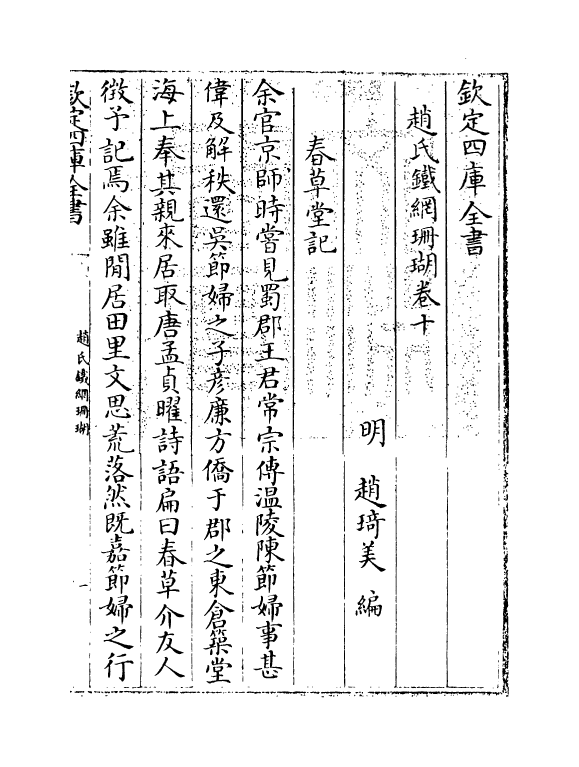 欽定四庫全書
趙氏鐵網珊瑚卷十
明　趙琦美　編
春草堂記
余官京師時嘗見蜀郡王君常宗傳温陵陳節婦事甚
偉及解秩還吳節婦之子彦廉方僑于郡之東倉築堂
海上奉其親來居取唐孟貞曜詩語扁曰春草介友人
徴予記焉余雖閒居田里文思荒落然既嘉節婦之行
欽定四庫全書
趙氏鐵網珊瑚
一